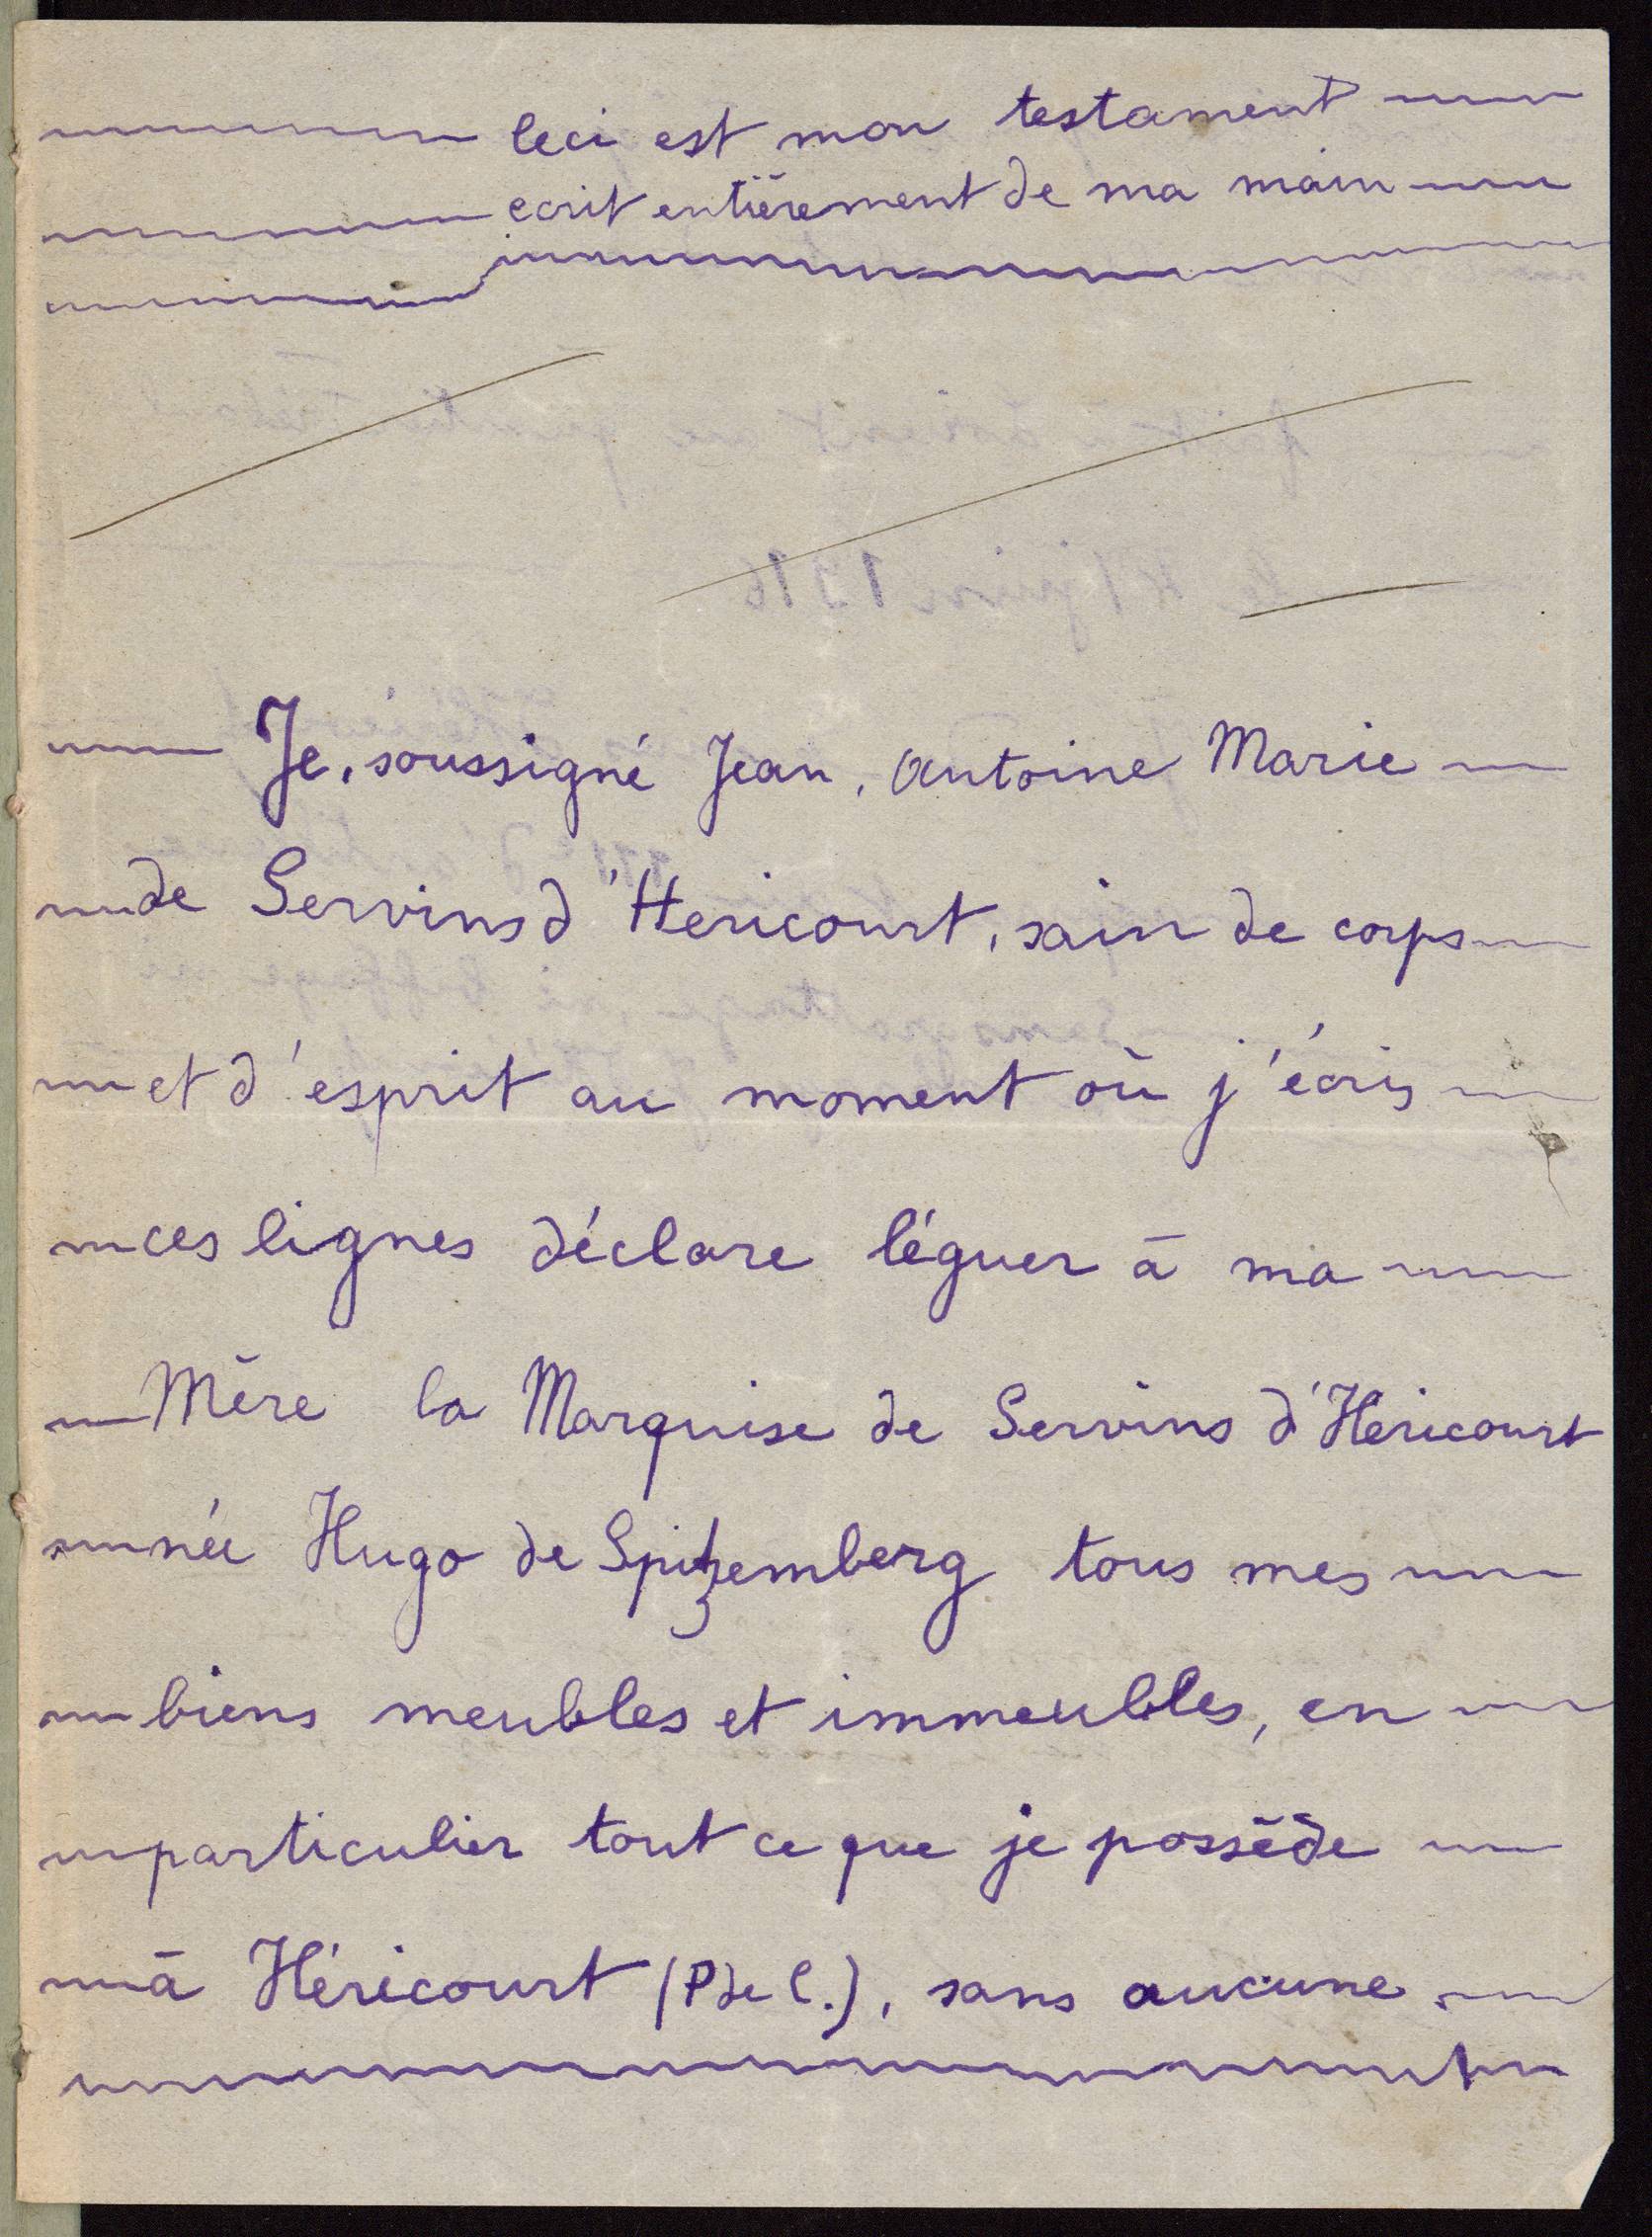 Ceci est mon testament
ecrit entièrement de ma main
Je, soussigné Jean, Antoine Marie
de Servins d'Hericourt, sain de corps
et d'esprit au moment où j'écris
ces lignes déclare léguer à ma
Mère la Marquise de Servins d'Héricourt
née Hugo de Spitzemberg tous mes
biens meubles et immeubles, en
particulier tout ce que je possède
à Héricourt (P de C.), sans aucune